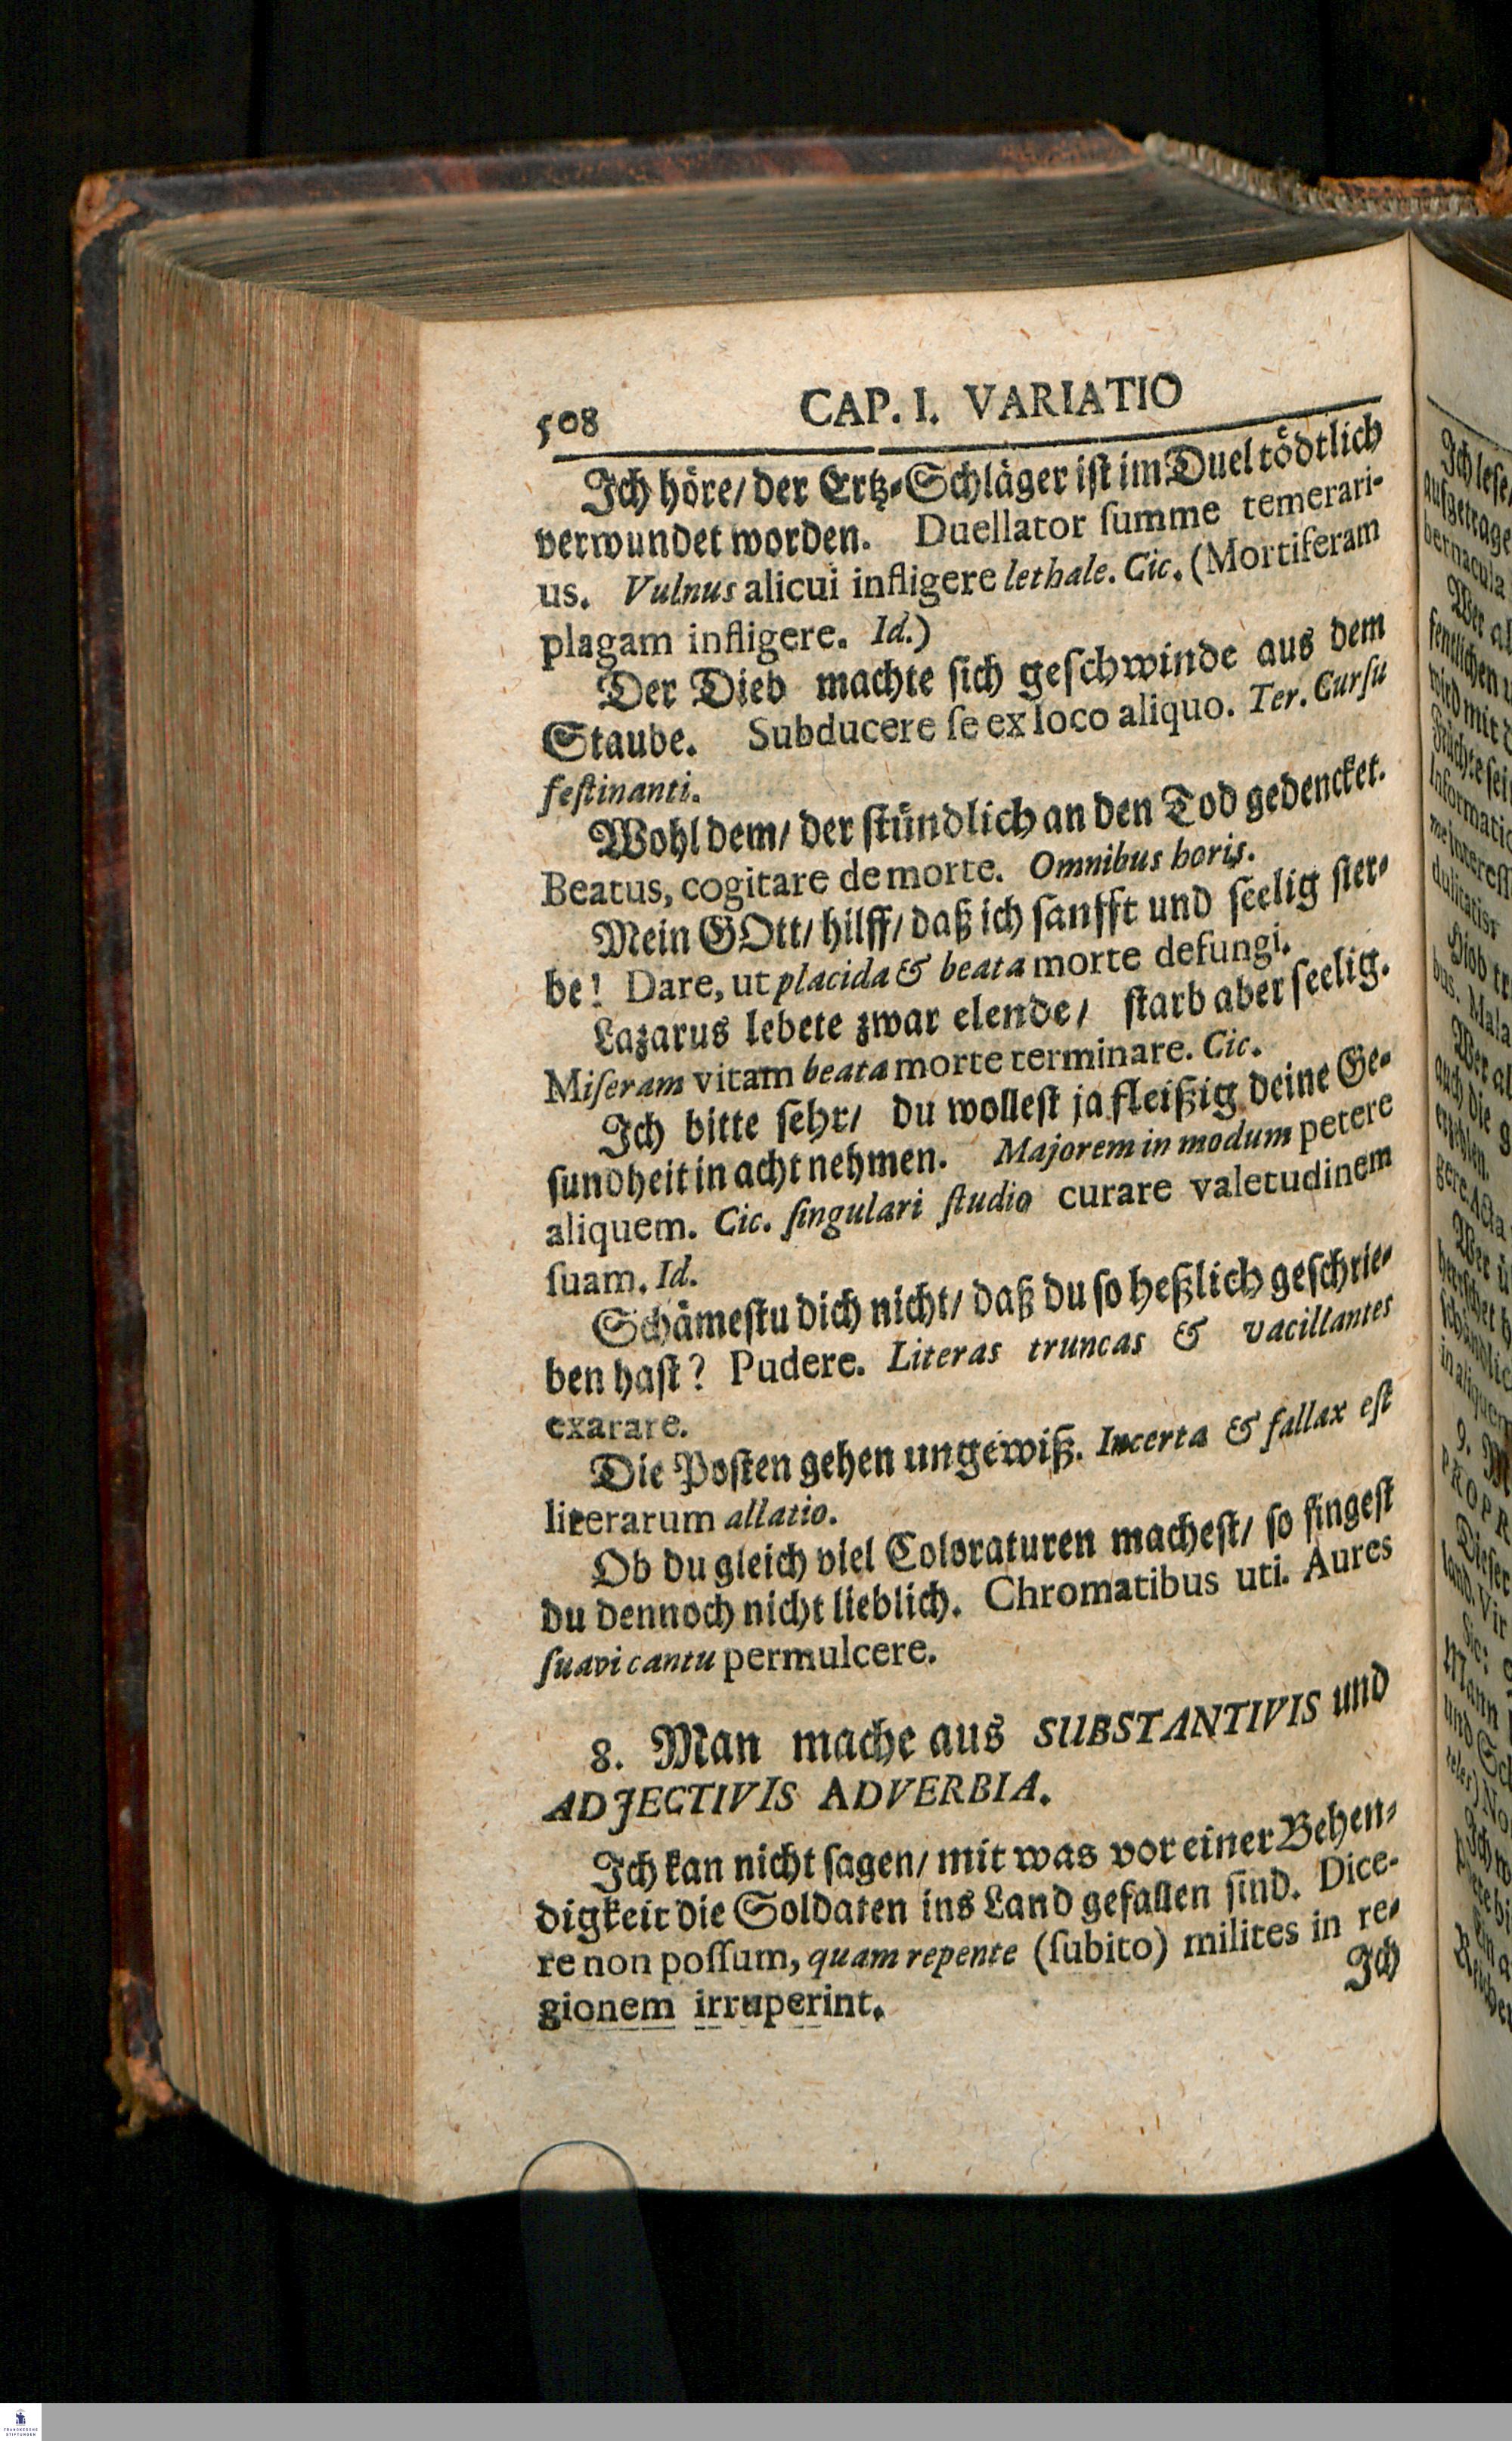 508 CAP. I. VARIATIO
Ich höre/ der Ertz-Schläger ist im Duel tödtlich
verwundet worden. Duellator ſumme temerari-
us. Vulnus alicui infligere lethale. Cic. (Mortiferam
plagam infligere. Id.)
Der Dieb machte ſich geſchwinde aus dem
Staube. Subducere ſe ex loco aliquo. Ter. Curſu
feſtinanti.
Wohl dem/ der ſtündlich an den Tod gedencket.
Beatus, cogitare de morte. Omnibus horis.
Mein GOtt/ hilff/ daß ich ſanfft und ſeelig ster-
be! Dare, ut placida & beata morte defungi.
Lazarus lebete zwar elende/ ſtarb aber ſeelig.
Miſeram vitam beata morte terminare. Cic.
Ich bitte ſehr/ du wolleſt ja fleißig deine Ge-
ſundheit in acht nehmen. Majorem in modum petere
aliquem. Cic. ſingulari ſtudio curare valetudinem
ſuam. Id.
Schämeſtu dich nicht/ daß du ſo heßlich geſchrie-
ben haſt? Pudere. Literas truncas & vacillantes
exarare.
Die Poſten gehen ungewiß. Incerta & fallax eſt
literarum allatio.
Ob du gleich viel Coloraturen macheſt/ ſo ſingeſt
du dennoch nicht lieblich. Chromatibus uti. Aures
ſuavi cantu permulcere.
8. Man mache aus SUBSTANTIVIS und
ADJECTIVIS ADVERBIA.
Ich kan nicht ſagen/ mit was vor einer Behen-
digkeit die Soldaten ins Land gefallen ſind. Dice-
re non poſſum, quam repente (ſubito) milites in re-
gionem irruperint.
Ich